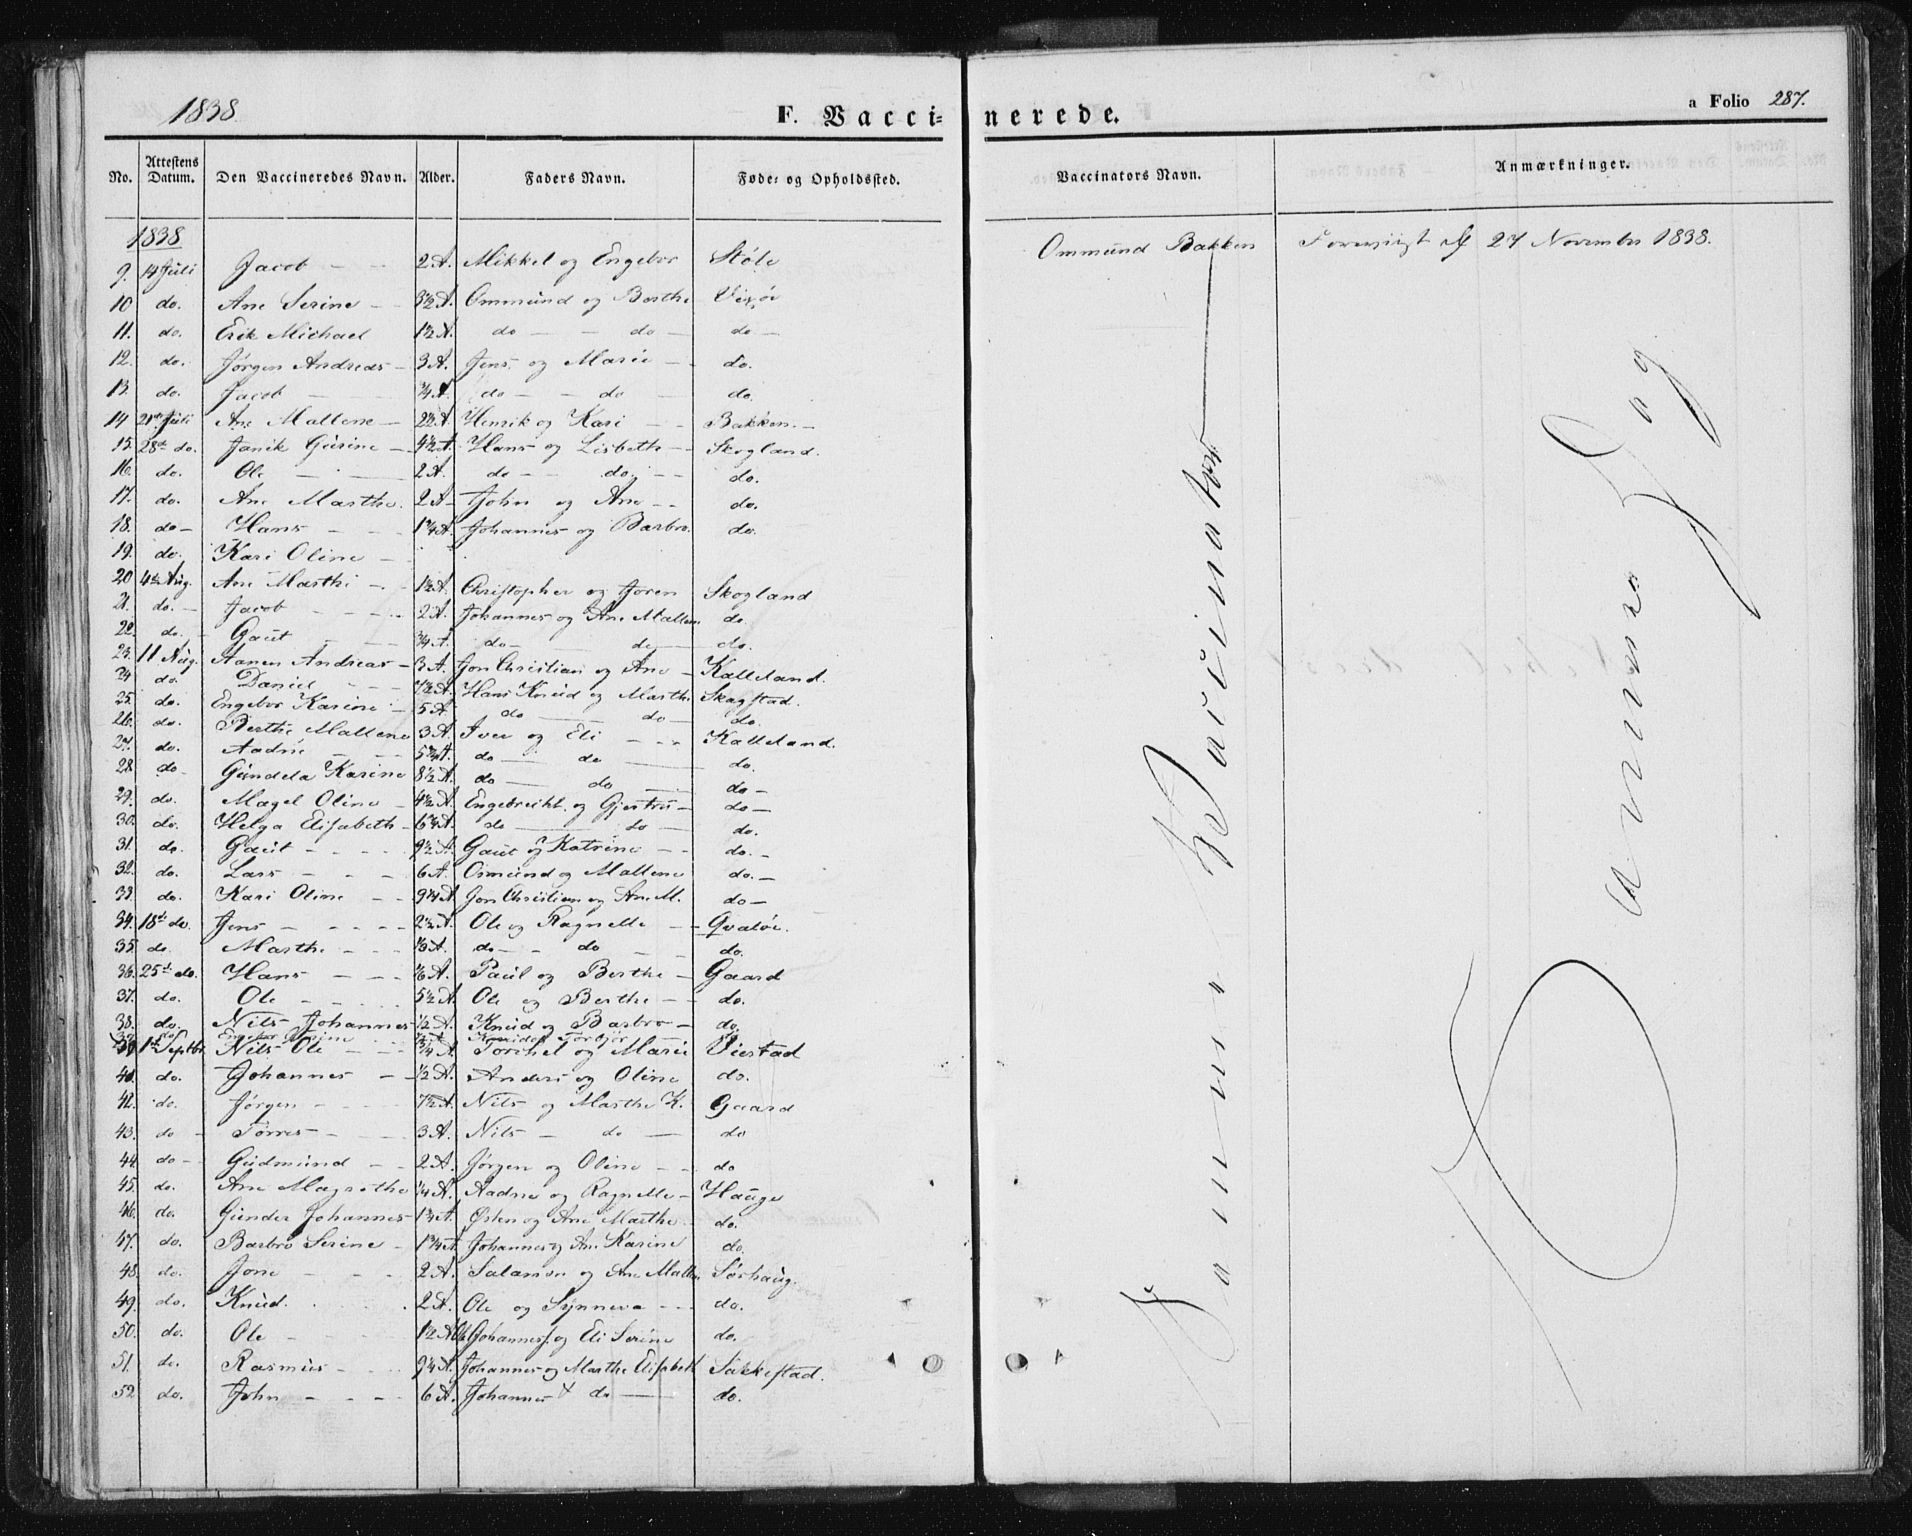 1838.
F. Vaccinerede.
a Folio 287.
No. Attestens Datum. Den Vaccineredes Navn. Alder. Faders Navn. Føde- og Opholdssted. Vaccinators Navn. Anmærkninger.
1838
9. 14 Juli Jacob 2 A. Mikkel og Engebor Støle Ommund Bakken Foreviist d. 27 November 1838.
10 do. Ane Serine 3½ A. Ommund og Berthe
11. do. Erik Michael 1½ A. do do do
12. do. Jørgen Andreas 3 A. Jens og Marie do.
13. do. Jacob ¾ A do do do.
14 21de Juli Ane Mallene 2½ A. Henrik og Kari Bakken.
15. 28de do. Janik Gurine 4½ A. Hans og Lisbeth Skogland.
16. do. Ole 2 A. do do do.
17. do. Ane Marthe. 2 A John og Ane do.
18. do Hans 1¾ A. Johannes og Barbro. do.
19. do. Kari Oline
20 4de Aug. Ane Marthe 1½ A. Christopher og Joren Skogland
21. do. Jacob 2 A. Johannes og Ane Mallene do.
22. do. Gaut ¾ A. do do do.
23. 11 Aug. Aanen Andreas 3 A. Jon Christian og Ane Kalleland.
24 do. Daniel 7½ A. Hans Knud og Marthe Skagstad.
25. do. Engebor Karine 5 A. do do do.
26. do. Berthe Mallene 3 A. Iver og Eli Kalleland.
27. do. Aadne 5¾ A. do do do.
28. do Gundela Karine 8½ A. do do do
29. do. Magel Oline 4½ A. Engebreckt. og Gjertru do
30. do. Helga Elisabeth 6¾ A. do do do.
31. do. Gaut 9½ A. Gaut og Katrine do.
32. do. Lars 6 A. Osmund og Mallene do.
33. do. Kari Oline 9¼ A Jon Christian og Ane M. do
34. 18de do. Jens 2½ A. Ole og Ragnelle Qvaløe.
35. do. Marthe A. do do do.
36. 25de do. Hans A. Paul og Berthe Gaard
37. do. Ole 5½ A. Ole og Berthe do.
38. do. Nils Johannes ½ A. Knud og Barbro do.
39 do Engebor Serine Knud og Torbjør
40 1de Septbr. Nils Ole ¾ A Torkel og Marie Viestad
41. do. Johannes ½ A. Anders og Oline do.
42. do. Jørgen 7½ A. Nils og Marthe K. Gaard
43. do Torres 3 A. Nils do do
44 do Gudmund 2 A. Jørgen og Oline do
45. do. Ane Magrethe ¼ A. Aadne og Ragnelle Hauge
46. do. Gunder Johannes 1¾ A. Østen og Ane Marthe. do.
47. do. Barbro Serine 1¾ A Johannes og Ane Karine do.
48. do. Jone 2 A. Salamon og Ane Mallene Sørhaug.
49. do. Knud. 2 A. Ole og Synneva do.
50. do. Ole 1½ A. Ole Johannes. og Eli Serine do.
51. do. Rasmus 9¼ A. Johannes og Marthe Elisabeth Sakkestad.
52 do. John 6 A. Johannes + do do.
Samme Vaccinator
Samme Dag